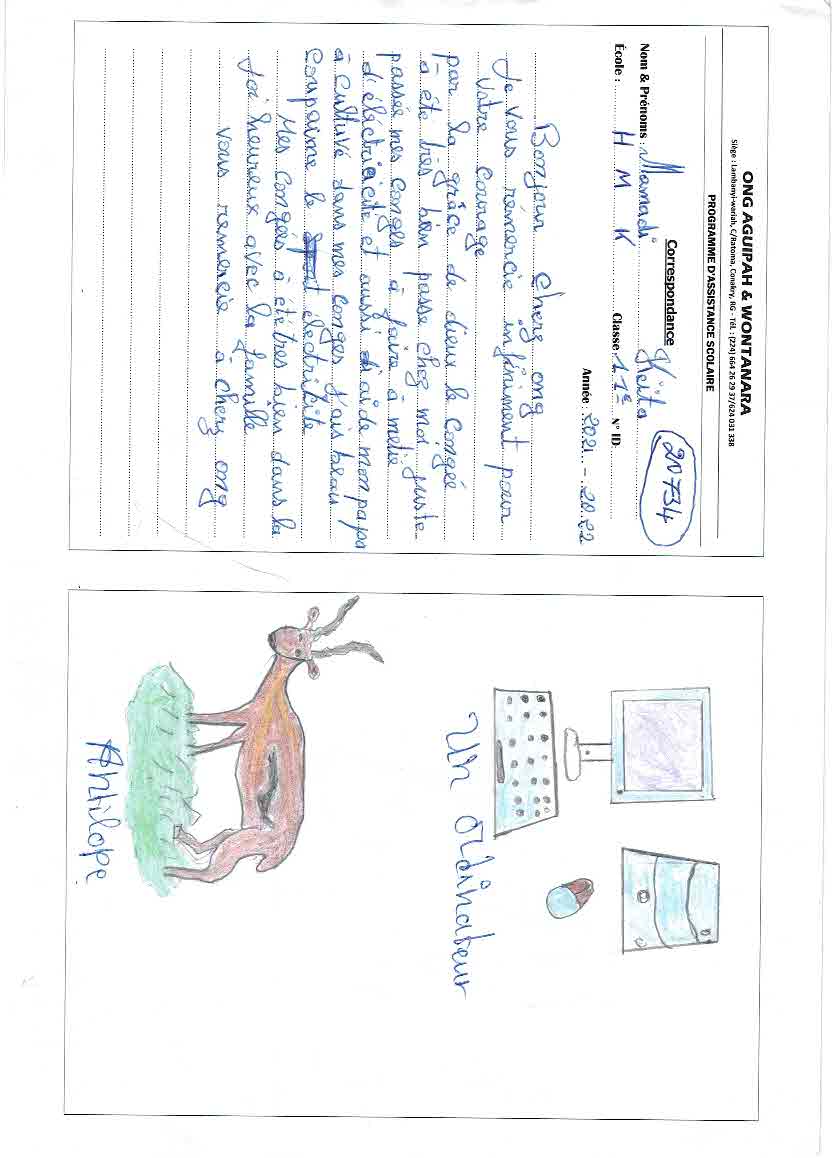 ONG AGUIPAH & WONTANARA
Siège : Lambanyi-wariah, C/Ratoma, Conakry, RG - Tél. : (224) 664 26 29 37/624 031 338
PROGRAMME D'ASSISTANCE SCOLAIRE
Correspondance
20734
Nom & Prénoms : Mamadi Keita
École : H M K Classe : 11e N° ID:
Année : 2021 - 2022
Bonjour chers ong
Je vous rémercie infiniment pour
votre courage
par la grâce de dieux le congée
à été très bien passe chez moi juste
passée mes congés à faire à metie
d'éléctricité et aussi d'aide mon papa
à cultuvé dans mes conges j'ais beau
Compaime le électrikite
Mes congés à été tres bien dans la
Joi heureux avec la famille
vous remercie à chers ong
Un Ordinateur
Antilope